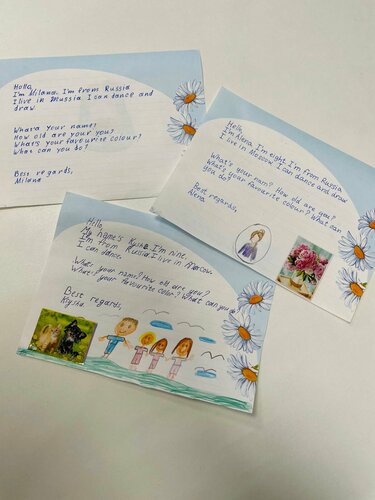 Hello,
I'm Milana. I'm from Russia
I live in Mussia. I can dance and
draw.
What's your name?
How old are your you?
What's your favourite colour?
What can you do?
Best regards,
Milana
Hello,
I'm Alena, I'm eight. I'm from Russia
I live in Moscow. I can dance and draw
What's your nam? How old are you?
What's your favourite colour? What can
you do?
Best regards,
Hello,
My name's I'm nine.
I'm from Russia. I live in Moscow.
I can dance.
What your name? How old are you?
What your favourite color? What can you do
Best regards,